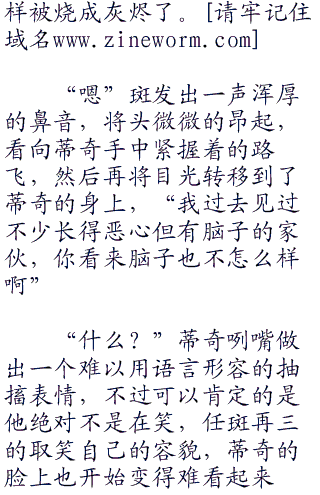 样被烧成灰烬了。[请牢记住
域名www.zineworm.com]
“嗯”斑发出一声浑厚
的鼻音，将头微微的昂起，
看向蒂奇手中紧握着的路
飞，然后再将目光转移到了
蒂奇的身上，“我过去见过
不少长得恶心但有脑子的家
伙，你看来脑子也不怎么样
啊”
“什么？”蒂奇咧嘴做
出一个难以用语言形容的抽
搐表情，不过可以肯定的是
他绝对不是在笑，任斑再三
的取笑自己的容貌，蒂奇的
脸上也开始变得难看起来